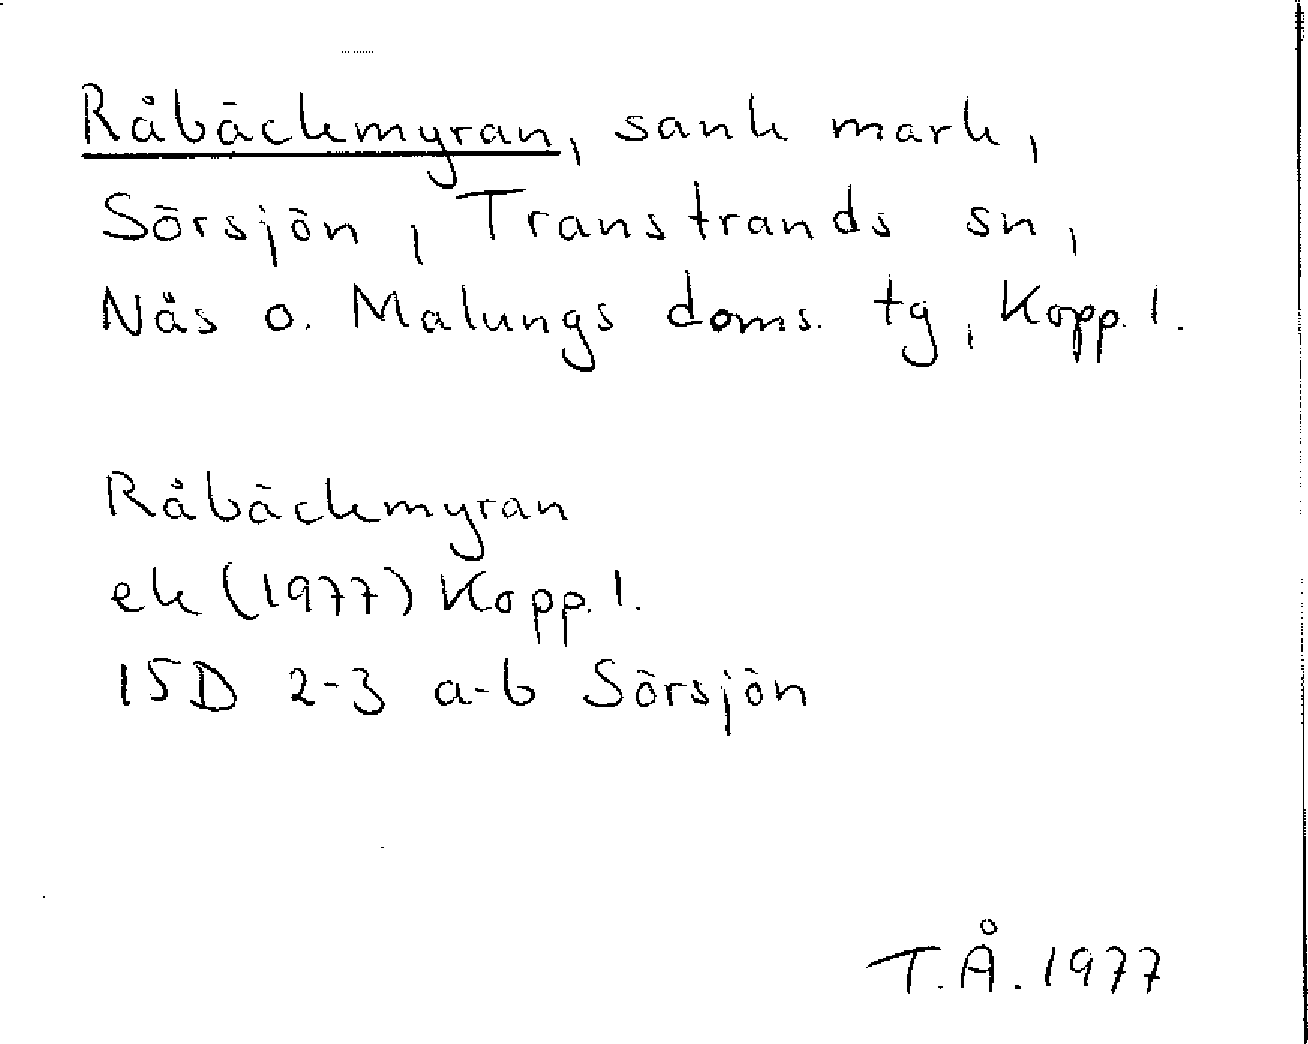 Råbäckmyran, sank mark,
Sörsjön, Transtrands sn,
Näs o. Malungs doms. tg, Kopp. l.
Råbäckmyran
ek (1977) Kopp. l.
15D 2-3 a-b Sörsjön
T.Å. 1977